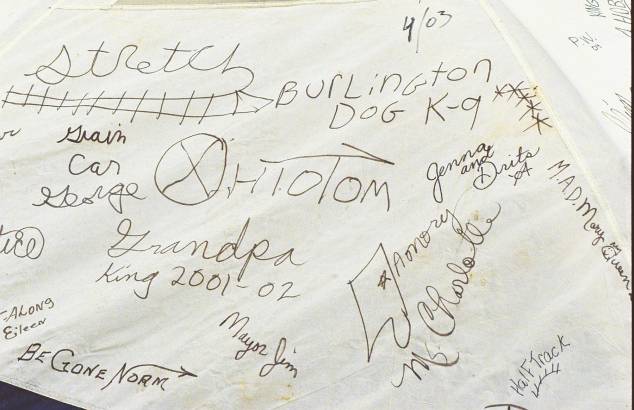 4/03
Stretch
BURLINGTON
DOG K-9
Grain
Car
George
OHIOTOM
Jenna
and
Brits
M.A.D. Mary
Grandpa
King 2001-02
Amory
Ms Charlotte
ALONG
Eileen
Mayor Jim
BE GONE NORM
Half Track